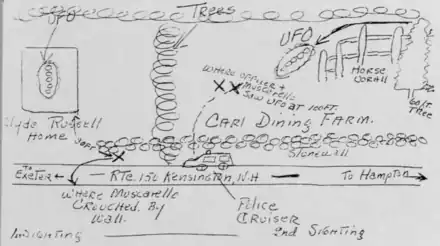 Trees
UFO
UFO
HORSE
CORALL
60 FT.
TREE
WHERE OFFICER &
Muscarello
SAW UFO AT 100FT.
CARL Dining FARM.
Clyde Russell
Home
30FT
Stonewall
TO
EXETER
RTE. 150 KENSINGTON, N.H
To Hampton
WHERE MUSCARELLO
CROUCHED BY
WALL.
POLICE
CRUISER
2nd SIGHTING
1st SIGHTING